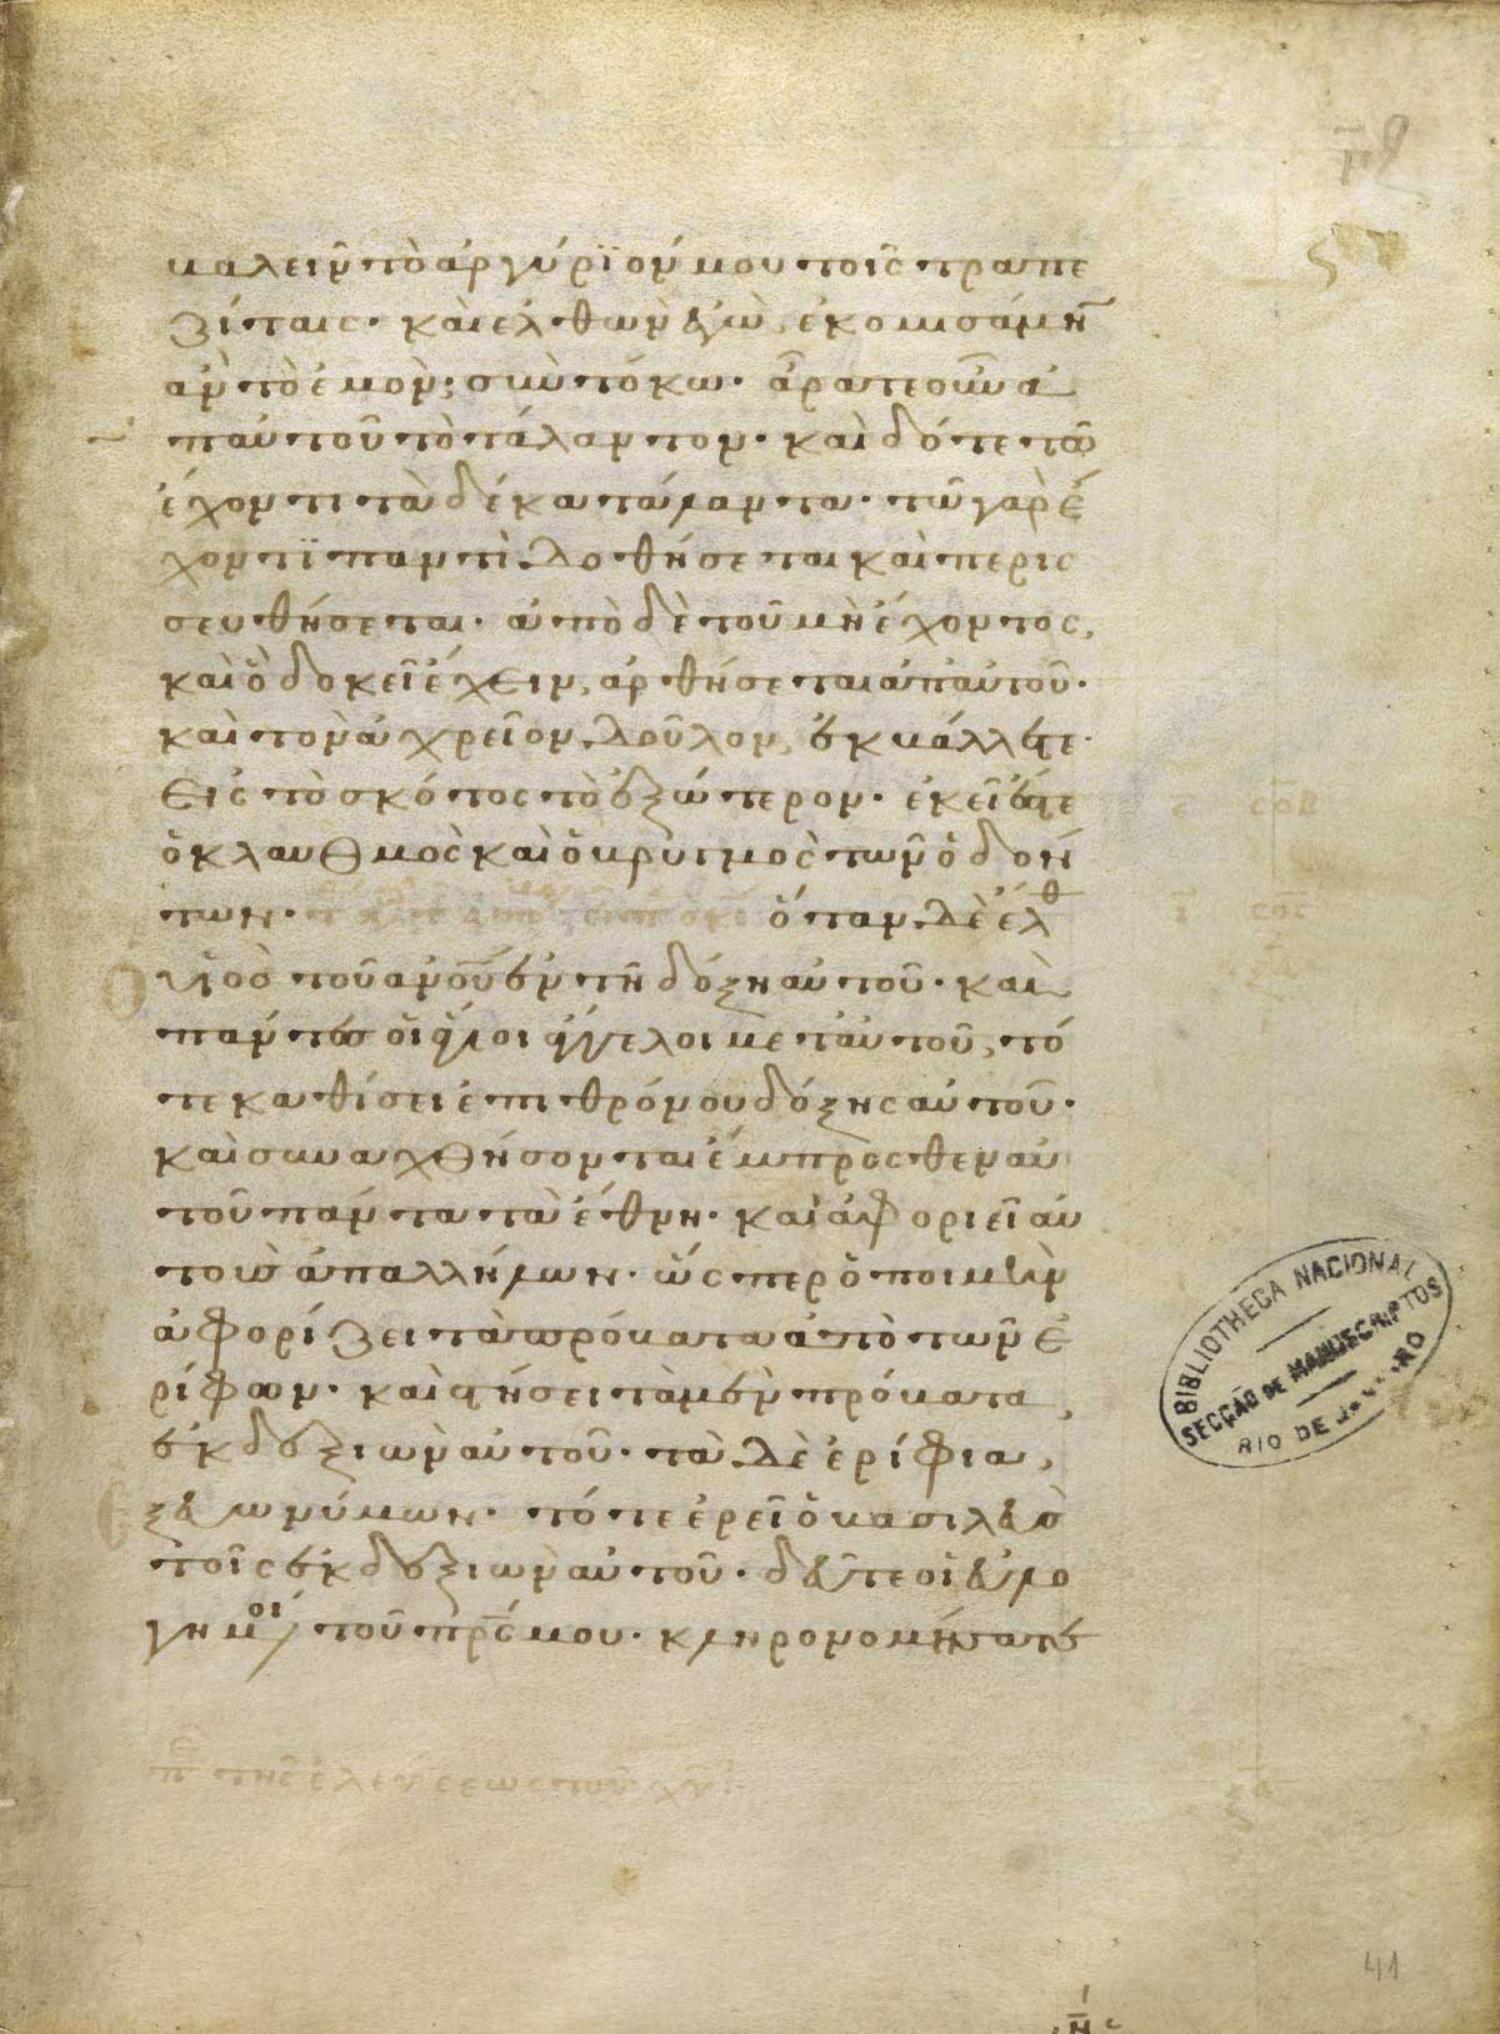 βαλεῖν τὸ ἀργύρϊόν μου τοῖς τραπε
ζίταις· καὶ ἐλθὼν ἐγὼ, ἐκομισάμην
ἂν τὸ ἐμὸν· σὺν τόκω· ἄρατε οὖν ἀ
π αὐτοῦ τὸ τάλαντον· καὶ δότε τῶ
ἔχοντι τὰ δέκα τάλαντα· τῶ γὰρ ἔ
χοντϊ παντὶ δοθήσεται καὶ περισ
σευθήσεται· ἀπὸ δὲ τοῦ μὴ ἔχοντος,
καὶ ὃ δοκεῖ ἔχειν, ἀρθήσεται ἀπ αὐτοῦ·
καὶ τὸν ἀχρεῖον δοῦλον, ἐκβάλλετε·
εἰς τὸ σκότος τὸ ἐξώτερον· ἐκεῖ ἔσται
ὁ κλαυθμὸς καὶ ὁ βρυγμὸς τῶν ὀδόν
των· ὅταν δὲ ἔλθ
υἱὸς τοῦ ἀνου ἐν τῆ δόξη αὐτοῦ· καὶ
πάντες οἱ ἅγιοι ἄγγελοι μετ αὐτοῦ, τό
τε καθίσει ἐπι θρόνου δόξης αὐτοῦ·
καὶ συναχθήσονται ἔμπροσθεν αὐ
τοῦ πάντα τὰ ἔθνη· καὶ ἀφοριεῖ αὐ
τοὺς ἀπ αλλήλων· ὥσπερ ὁ ποιμὴν
ἀφορίζει τὰ πρόβατα ἀπὸ τῶν ἐ
ρίφων· καὶ στήσει τὰ μὲν πρόβατα,
ἐκ δεξιῶν αὐτοῦ· τὰ δὲ ἐρίφια,
ἐξ εὐωνύμων· τότε ἐρεῖ ὁ βασιλεὺς
τοῖς ἐκ δεξιῶν αὐτοῦ· δεῦτε οἱ εὐλο
γημοι τοῦ πρς μου· κληρονομήσατε
τῆς ἐλεύσεως τοῦ χυ
BIBLIOTHECA NACIONAL
SECÇÃO DE MANUSCRIPTOS
RIO DE JANEIRO
41